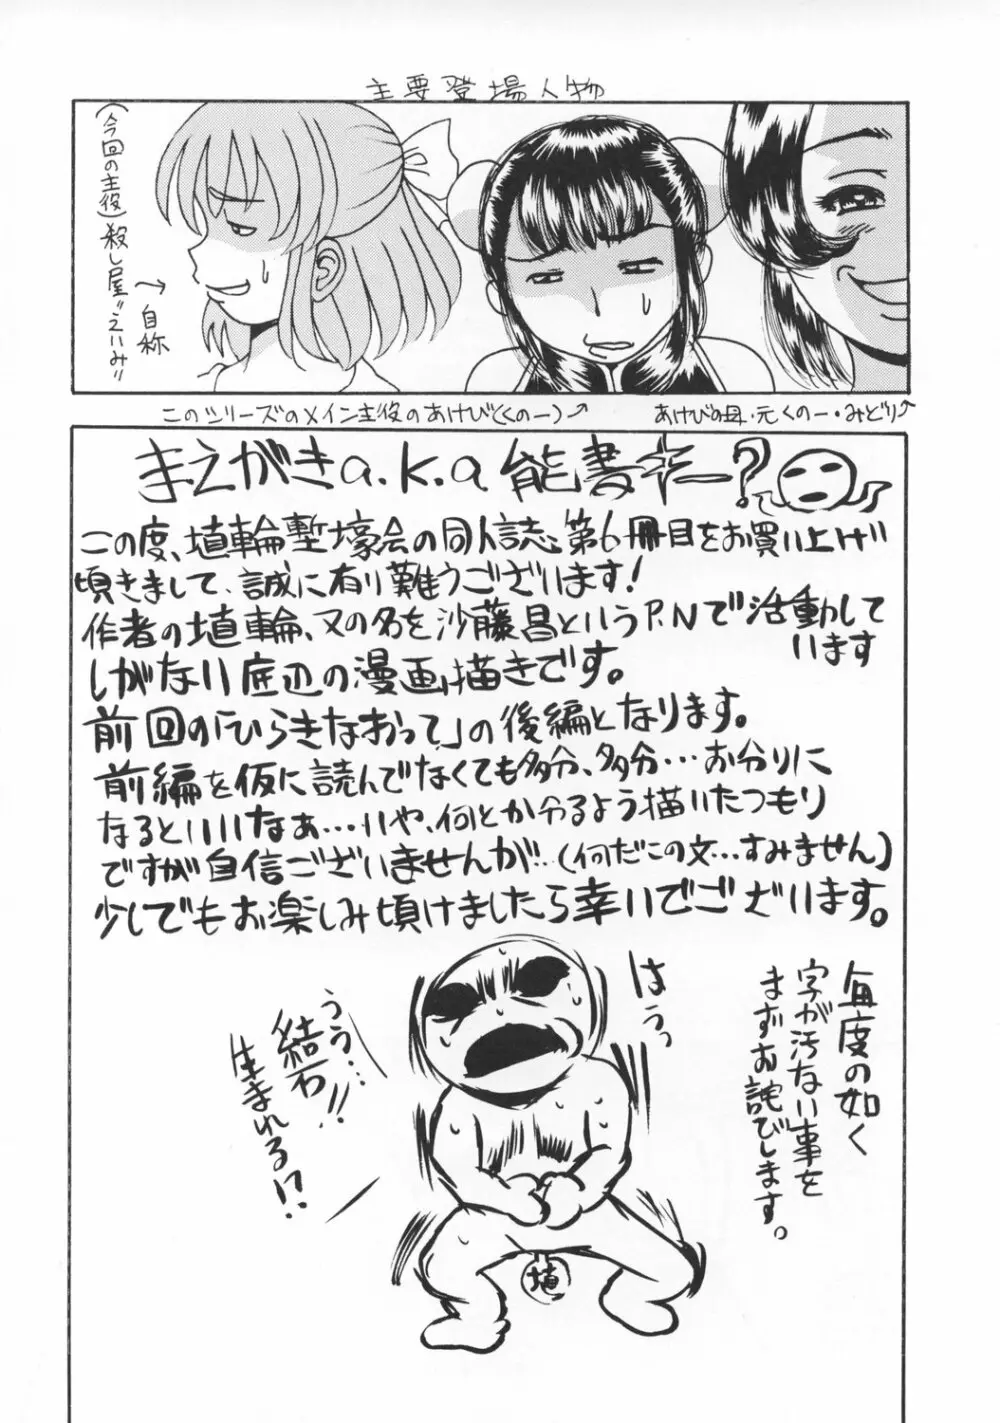 主要登場人物
(今回の主役)殺し屋"えいみ"
→自称
このシリーズのメイン主役のあけび(くのー)→
あけびの母・元くのー・みどり→
まえがきa.k.a能書キー?
この度、埴輪塹壕会の同人誌、第6冊目をお買い上げ
頃きまして、誠に有り難うございます!
作者の埴輪、又の名を沙藤昌というP.Nで活動して
います
しがない底辺の漫画描きです。
前回の「ひらきなおって」の後編となります。
前編を仮に読んでなくても多分、多分…お分りに
なるといいなぁ…いや、何とか分るよう描いたつもり
ですが自信ございませんが…(何だこの文…すみません)
少しでもお楽しみ頃けましたら幸いでございます。
毎度の如く
字が汚ない事を
まずお詫びします。
はうっ
うう…
結石!!
生まれる!?
埴